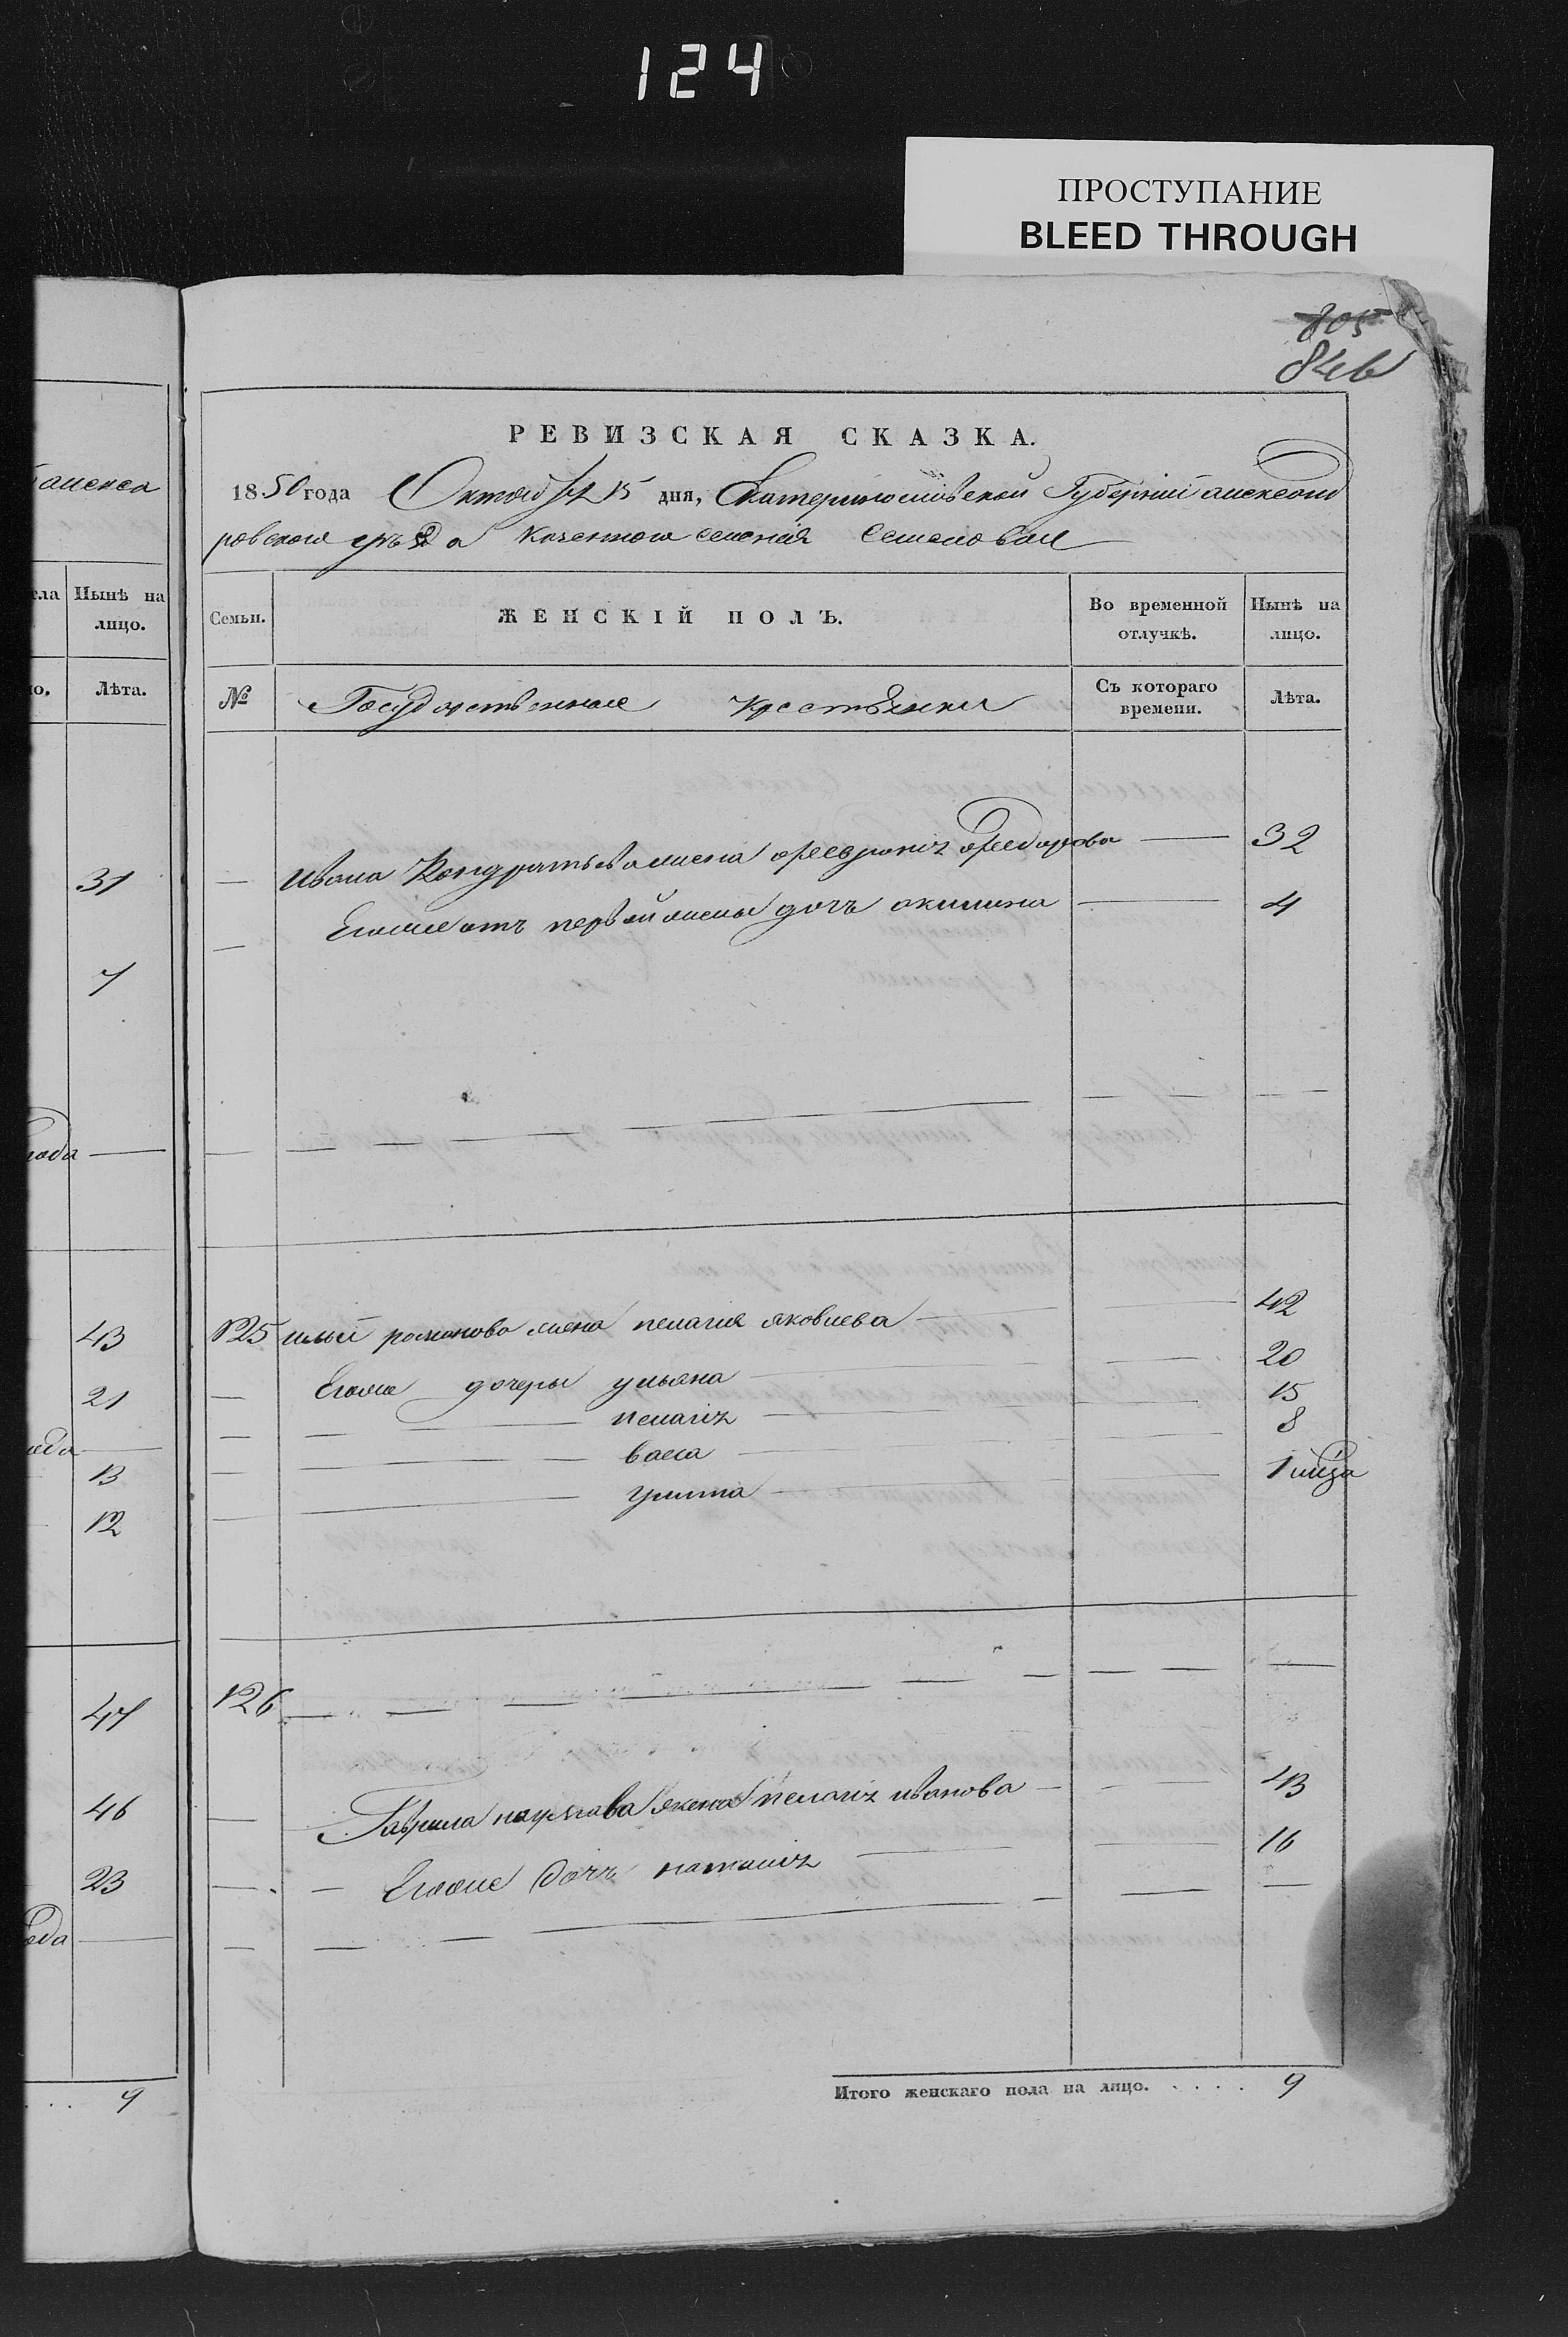 124
ПРОСТУПАНИЕ
BLEED THROUGH
805
846
РЕВИЗСКАЯ СКАЗКА.
1850 года Октября 15 дня, Екатеринославской Губернии александ
ровского уезда казенного селения
Нынѣ на лицо.
Лѣта.
Семьи.
ЖЕНСКІЙ ПОЛЪ.
Во временной отлучкѣ.
Нынѣ на лицо.
№
Государственные крестьянки
Съ котораго времени.
Лѣта.
31
— Ивана Кондратьева жена Федорова — 32
7
— Егоже отъ первой жены дочь акилина — 4
43
125 ильи романова жена пелагия яковлева — 42
21
— Егоже дочеры ульяна — 20
— пелагия — 15
13
— васса — 8
12
— улита — 1 мѣся
47
126
46
— Гаврила жена пелагия иванова — 43
23
— Егоже дочь наталия — 16
9
Итого женскаго пола на лицо. . . . . 9